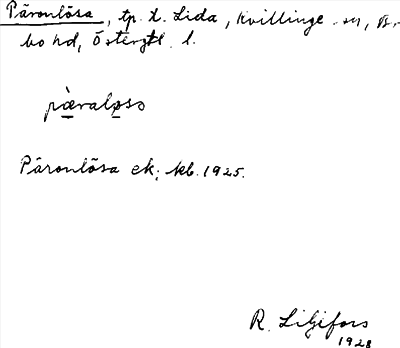 Päronlösa, tp. t. Lida, Kvillinge sn, Br.
bo hd, Östergtl. l.
pæ̀raløso
Päronlösa ek; kb. 1925.
R. Liljefors
1928